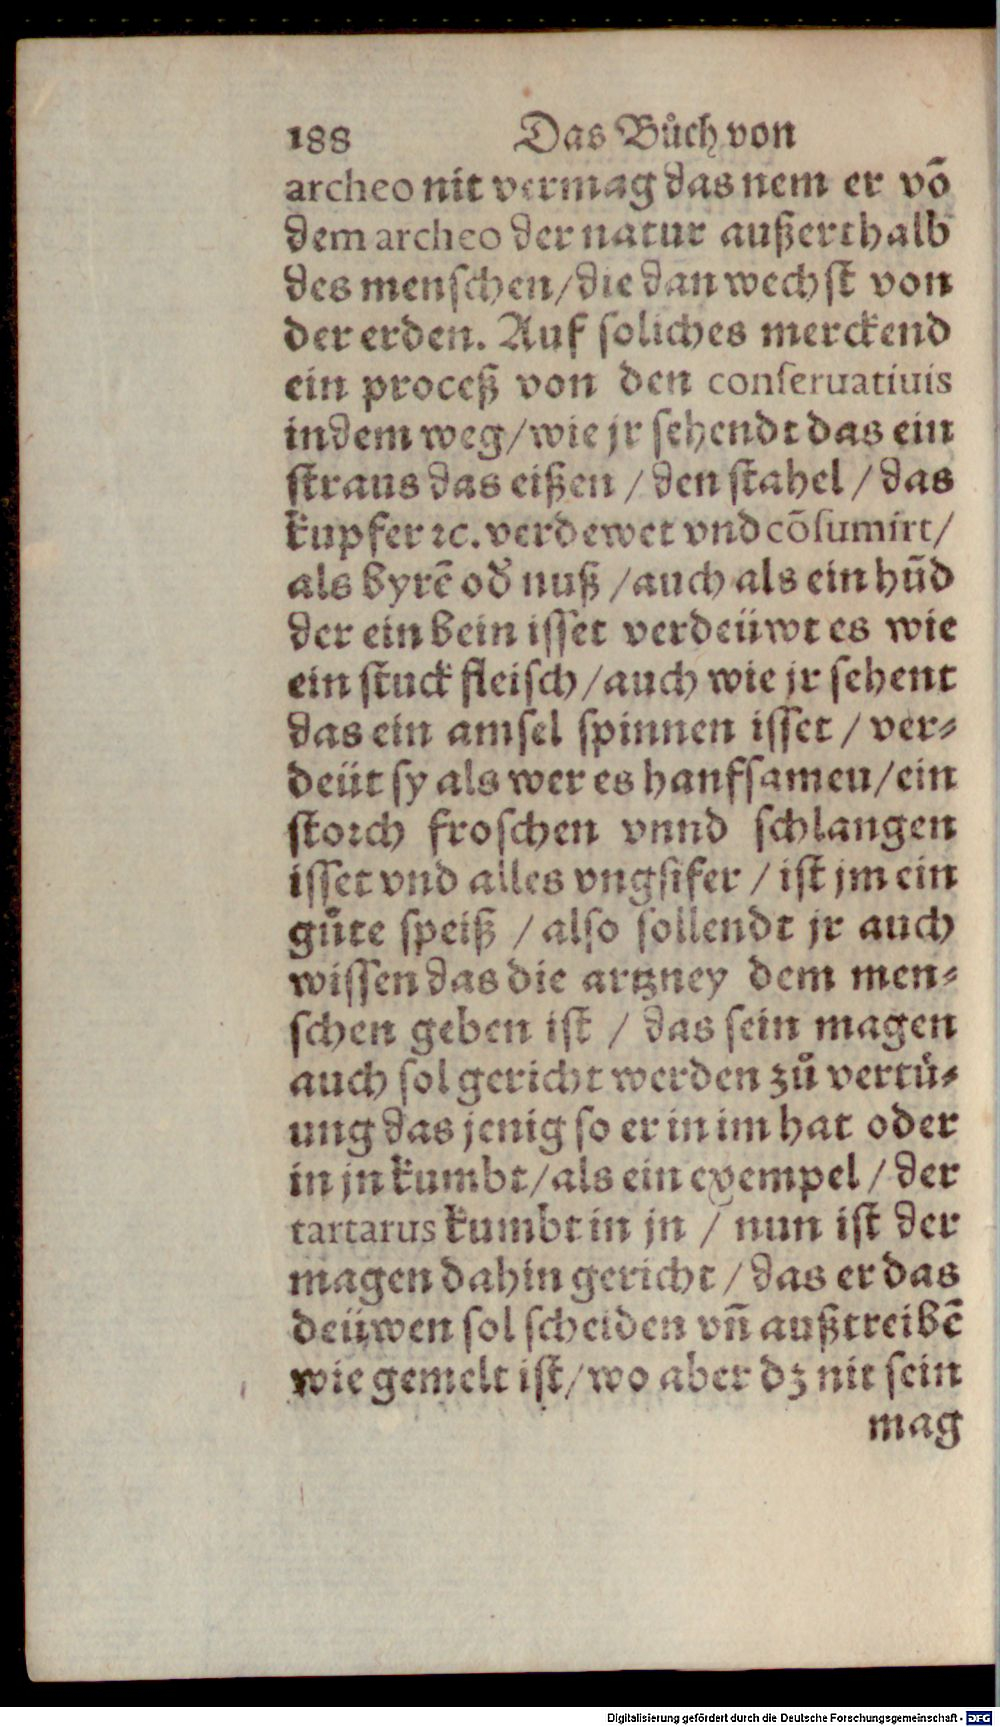 188 Das Bůch von
archeo nit vermag das nem er võ
dem archeo der natur außerthalb
des menschen/die dan wechst von
der erden. Auf soliches merckend
ein proceß von den conseruatiuis
indem weg/wie jr sehendt das ein
straus das eißen / den stahel / das
kupfer ꝛc. verdewet vnd cõsumirt/
als byrẽ od̃ nuß /auch als ein hũd
der ein bein isset verdeüwt es wie
ein stuck fleisch/auch wie jr sehent
das ein amsel spinnen isset / ver⸗
deüt sy als wer es hanfsameu/ein
storch froschen vnnd schlangen
isset vnd alles vngsifer / ist jm ein
gůte speiß / also sollendt jr auch
wissen das die artzney dem men⸗
schen geben ist / das sein magen
auch sol gericht werden zů vertü⸗
ung das jenig so er in im hat oder
in jn kumbt/als ein exempel / der
tartarus kumbt in jn / nun ist der
magen dahin gericht / das er das
deüwen sol scheiden vñ außtreibẽ
wie gemelt ist/wo aber dz nit sein
mag
Digitalisierung gefördert durch die Deutsche Forschungsgemeinschaft - DFG